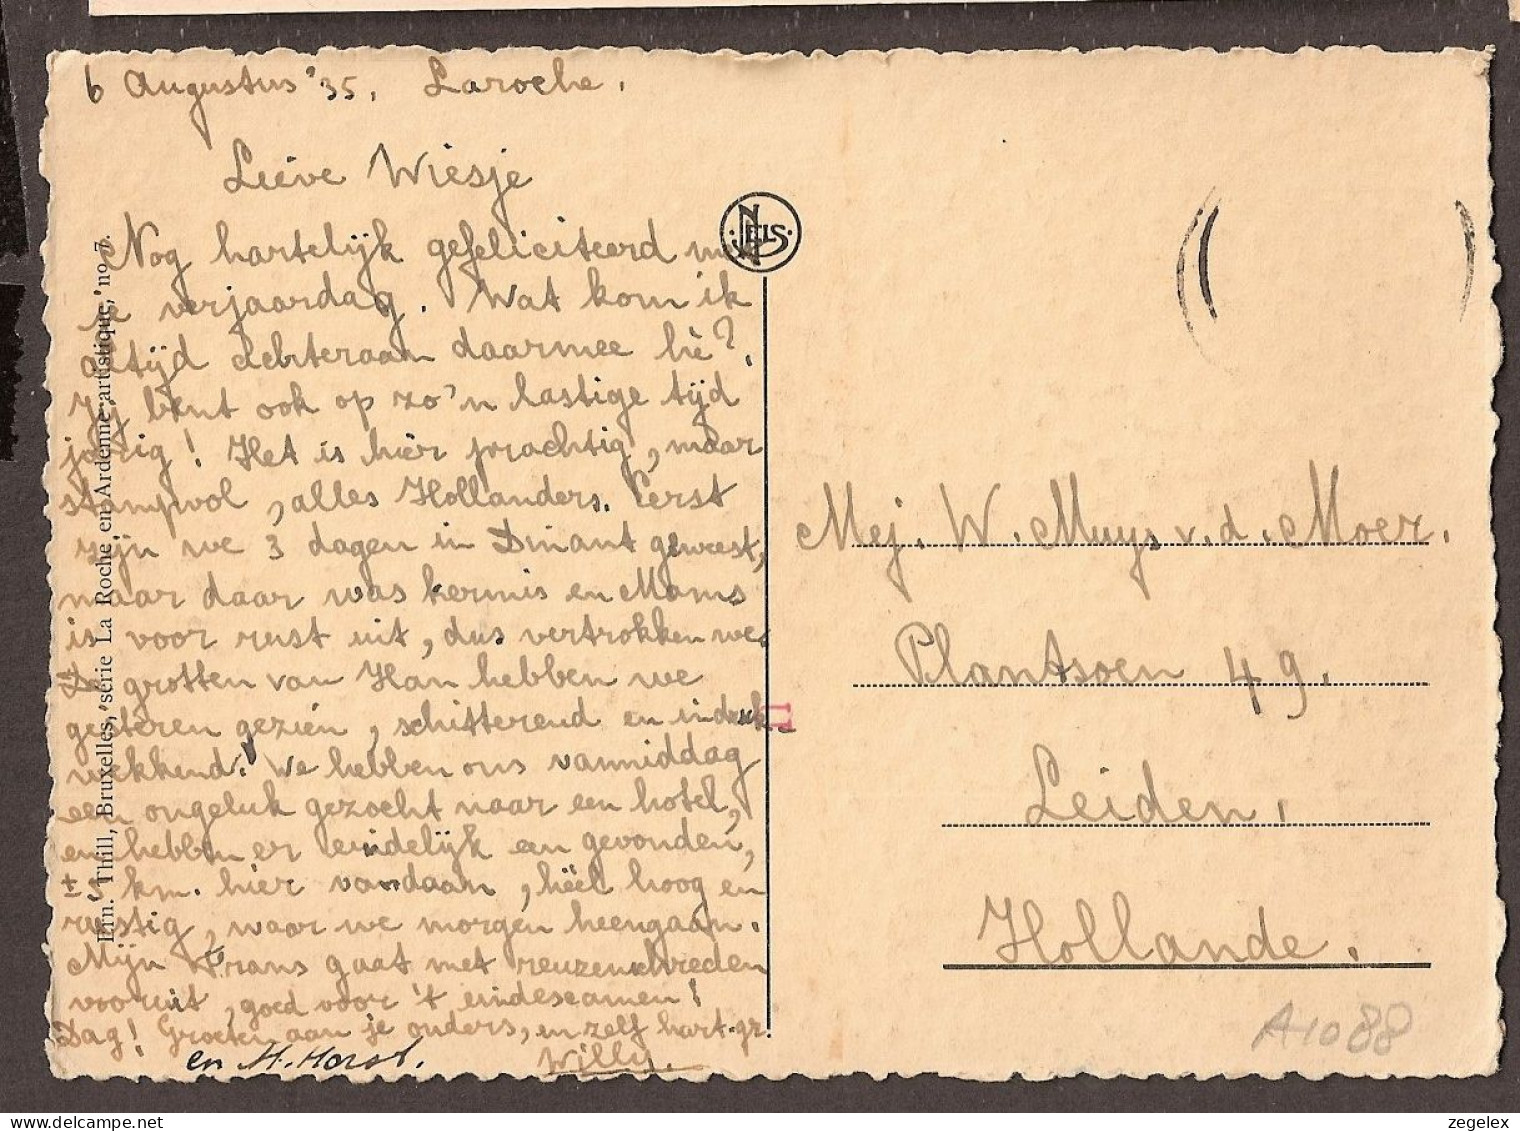 6 Augustus '35, Laroche.
Lieve Wiesje
Nog hartelijk gefeliciteerd met
je verjaardag. Wat kom ik
altijd achteraan daarmee hè?.
Jij bent ook op zo'n lastige tijd
jarig! Het is hier prachtig, maar
stampvol, alles Hollanders. Eerst
zijn we 3 dagen in Dinant geweest,
maar daar was kermis en Mams
is voor rust uit, dus vertrokken we.
De grotten van Han hebben we
gisteren gezien, schitterend en indruk
wekkend. We hebben ons vanmiddag
een ongeluk gezocht naar een hotel,
en hebben er eindelijk een gevonden,
± 3 km. hier vandaan, héél hoog en
rustig, waar we morgen heengaan.
Mijn Frans gaat met reuzenschreden
vooruit, goed voor 't eindexamen!
Dag! Groeten aan je ouders, en zelf hart. gr.
en M. Horst. Willy.
Ern. Thill, Bruxelles, série La Roche en Ardenne artistique, no 7.
NELS
Mej. W. Muys v. d. Moer.
Plantsoen 49.
Leiden.
Hollande.
A1088
zegelex